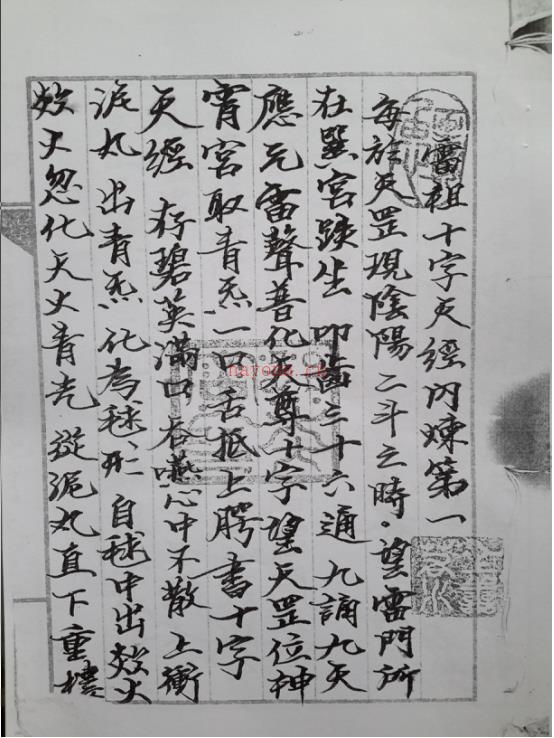 雷祖十字天經內煉第一
每於天罡現陰陽二斗之時。望雷門所
在巽宮趺坐 叩齒三十六通 九誦九天
應元雷聲普化天尊十字望天罡位神
霄宮取青炁一口舌抵上腭 書十字
天經 存碧英滿口 吞嚥心中不散 上衝
泥丸 出青炁 化為毬形 自毬中出燄火
燄火忽化天火青光 從泥丸直下重樓